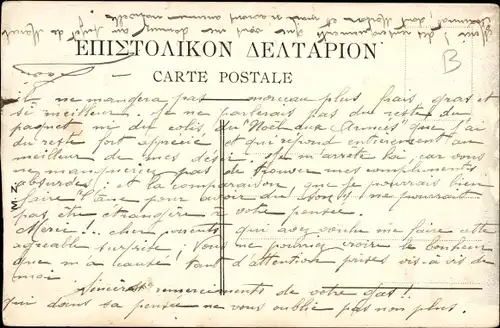 ΕΠΙΣΤΟΛΙΚΟΝ ΔΕΛΤΑΡΙΟΝ
CARTE POSTALE
B
ne mangera pas morceau plus frais, gras et
si meilleur. Je ne parlerais pas du reste du
paquet ni du colis, du "Noël aux Armées" que j'ai
du reste fort apprécié et qui répond entièrement au
meilleur de mes désirs. Je m'arrête là, car vous
ne manqueriez pas de trouver mes compliments
absurdes, et la comparaison, que je pourrais bien
faire l'âne pour avoir du son, ne pourrait
pas être étrangère à votre pensée.
Merci !.. cher parents qui avez voulu me faire cette
agréable surprise ! Vous ne pourriez croire le bonheur
que m'a causé tant d'attention prises vis-à-vis de
moi.
Sincères remerciements de votre gas !!
qui dans sa pensée ne vous oublie pas non plus.